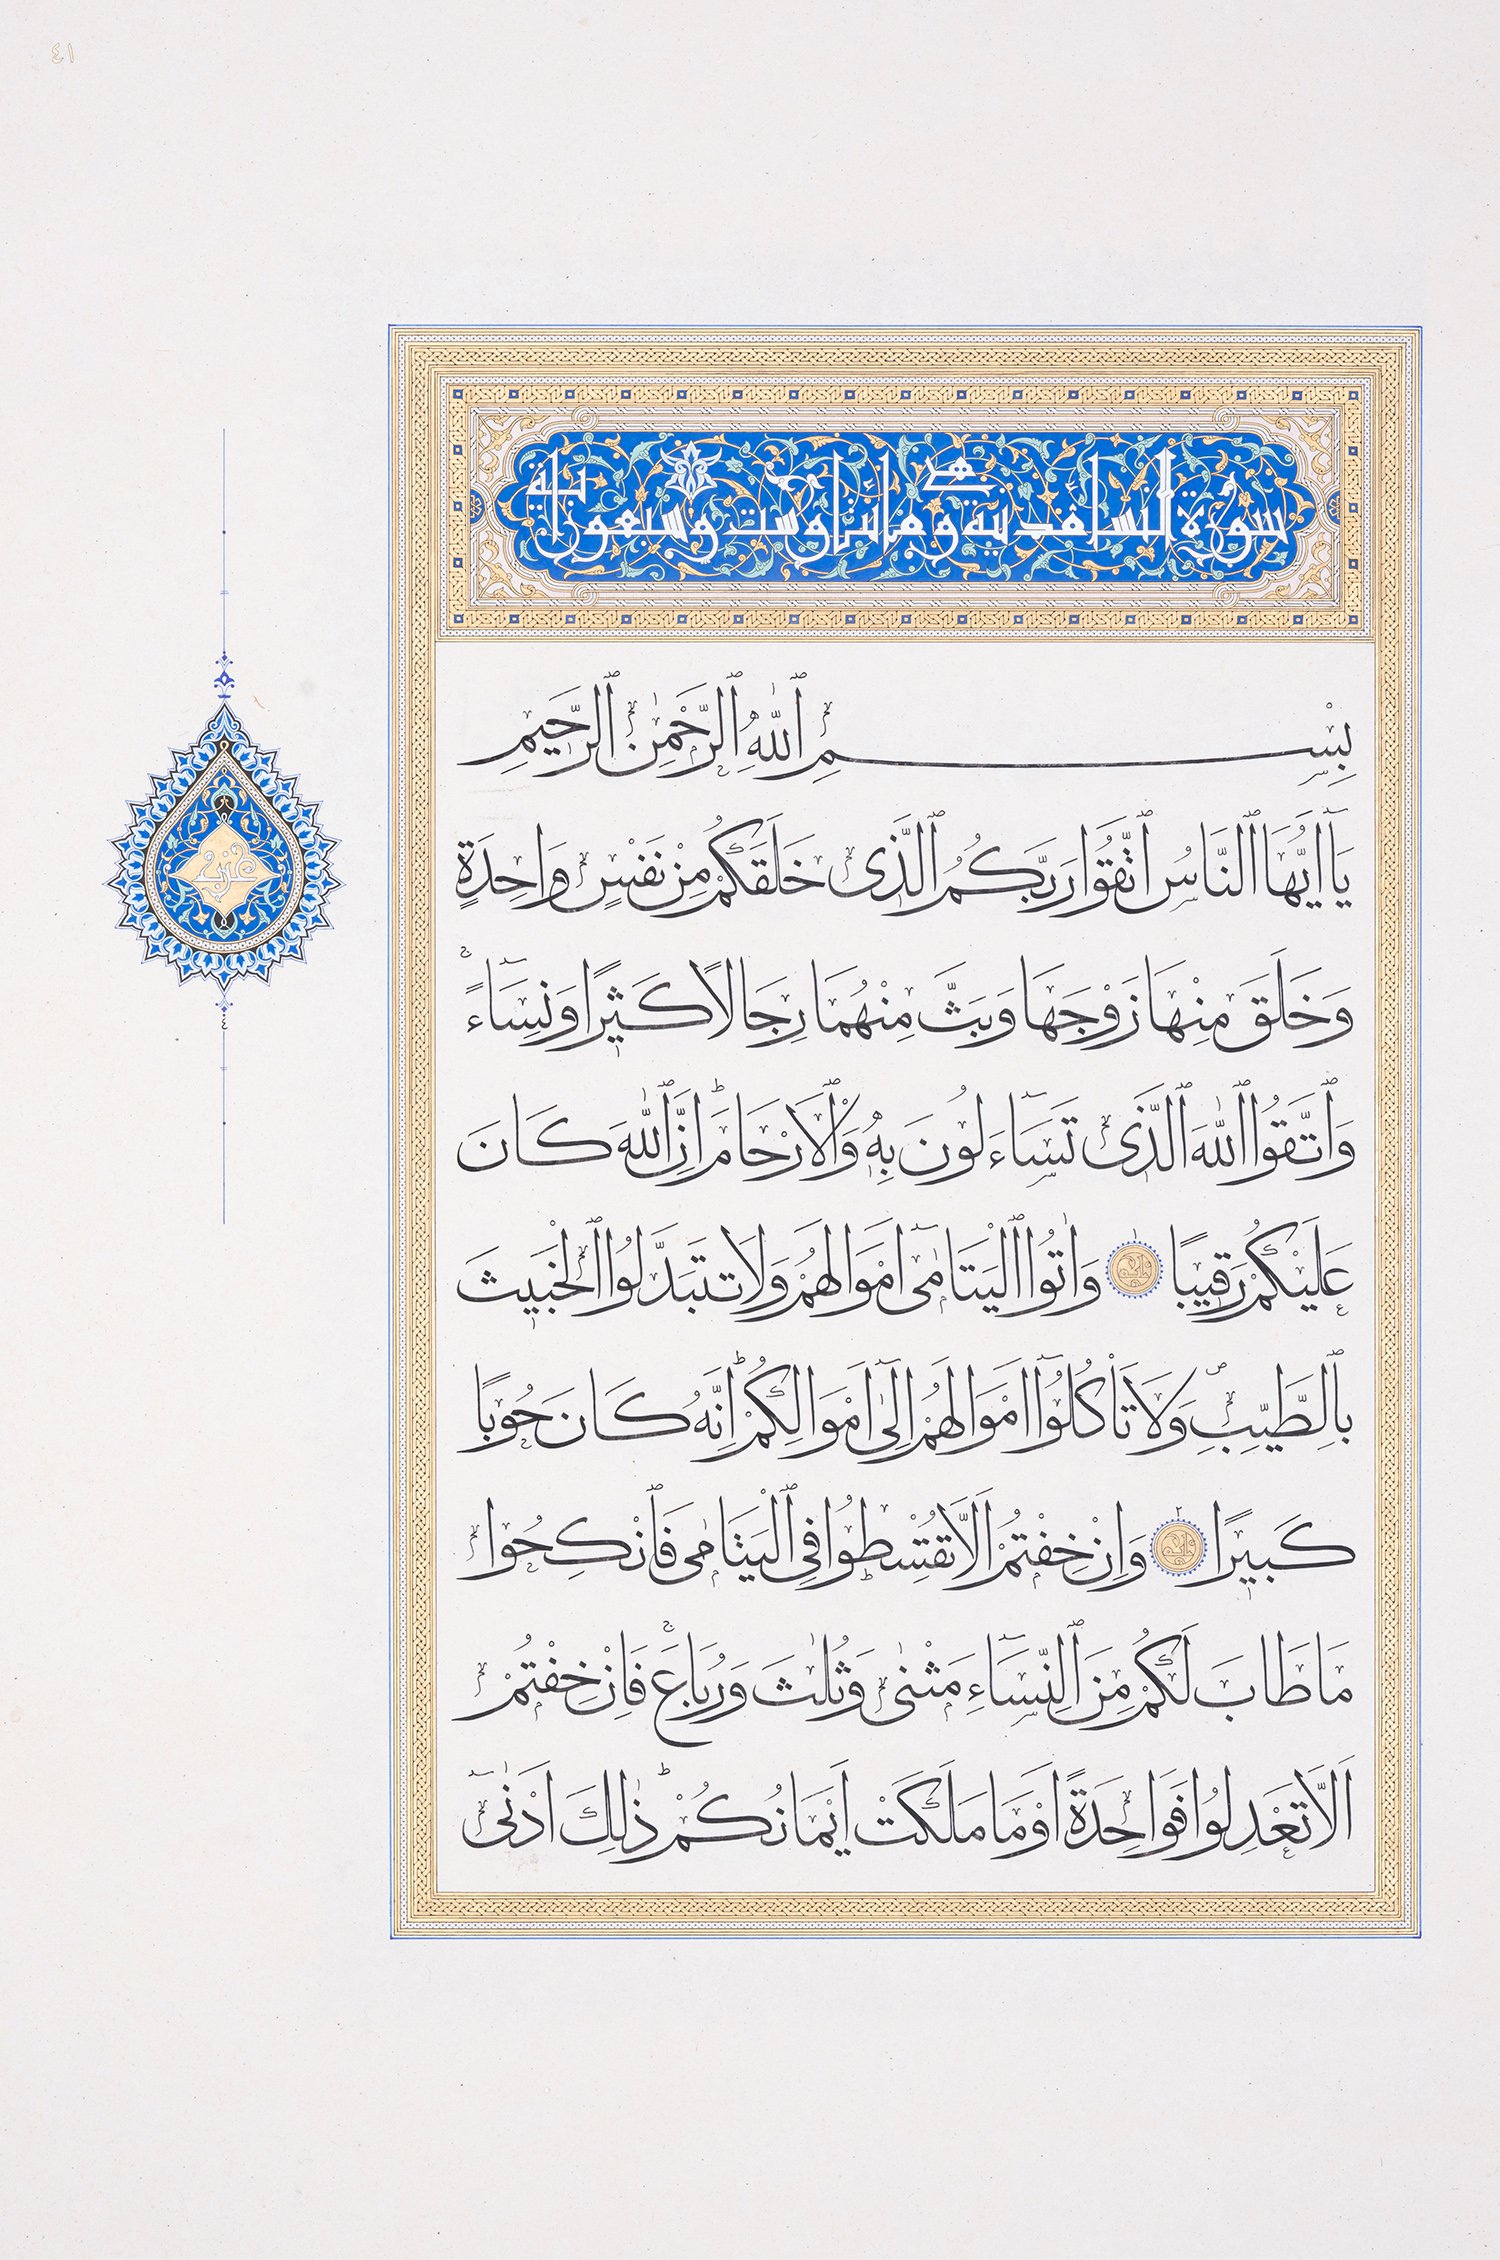 ٤١
سورة النساء مدنية وهي مائتان وست وسبعون آية
بِسْمِ ٱللّٰهِ ٱلرَّحْمٰنِ ٱلرَّحِيمِ
يَٓا اَيُّهَا ٱلنَّاسُ ٱتَّقُوا رَبَّكُمُ ٱلَّذٖى خَلَقَكُمْ مِنْ نَفْسٍ وَاحِدَةٍ
وَخَلَقَ مِنْهَا زَوْجَهَا وَبَثَّ مِنْهُمَا رِجَالًا كَثٖيرًا وَنِسَٓاءًۚ
وَٱتَّقُوا ٱللّٰهَ ٱلَّذٖى تَسَٓاءَلُونَ بِهٖ وَٱلْاَرْحَامَۜ اِنَّ ٱللّٰهَ كَانَ
عَلَيْكُمْ رَقٖيبًا
آية
وَاٰتُوا ٱلْيَتَامٰٓى اَمْوَالَهُمْ وَلَا تَتَبَدَّلُوا ٱلْخَبٖيثَ
بِٱلطَّيِّبِۖ وَلَا تَأْكُلُٓوا اَمْوَالَهُمْ اِلٰٓى اَمْوَالِكُمْۜ اِنَّهُ كَانَ حُوبًا
كَبٖيرًا
آية
٢
وَاِنْ خِفْتُمْ اَلَّا تُقْسِطُوا فِى ٱلْيَتَامٰى فَٱنْكِحُوا
مَا طَابَ لَكُمْ مِنَ ٱلنِّسَٓاءِ مَثْنٰى وَثُلٰثَ وَرُبَاعَۚ فَاِنْ خِفْتُمْ
اَلَّا تَعْدِلُوا فَوَاحِدَةً اَوْ مَا مَلَكَتْ اَيْمَانُكُمْۜ ذٰلِكَ اَدْنٰٓى
حزب
٤